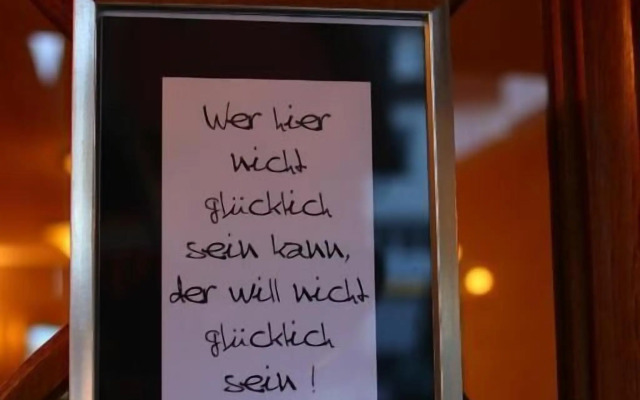 Wer hier
nicht
glücklich
sein kann,
der will nicht
glücklich
sein !